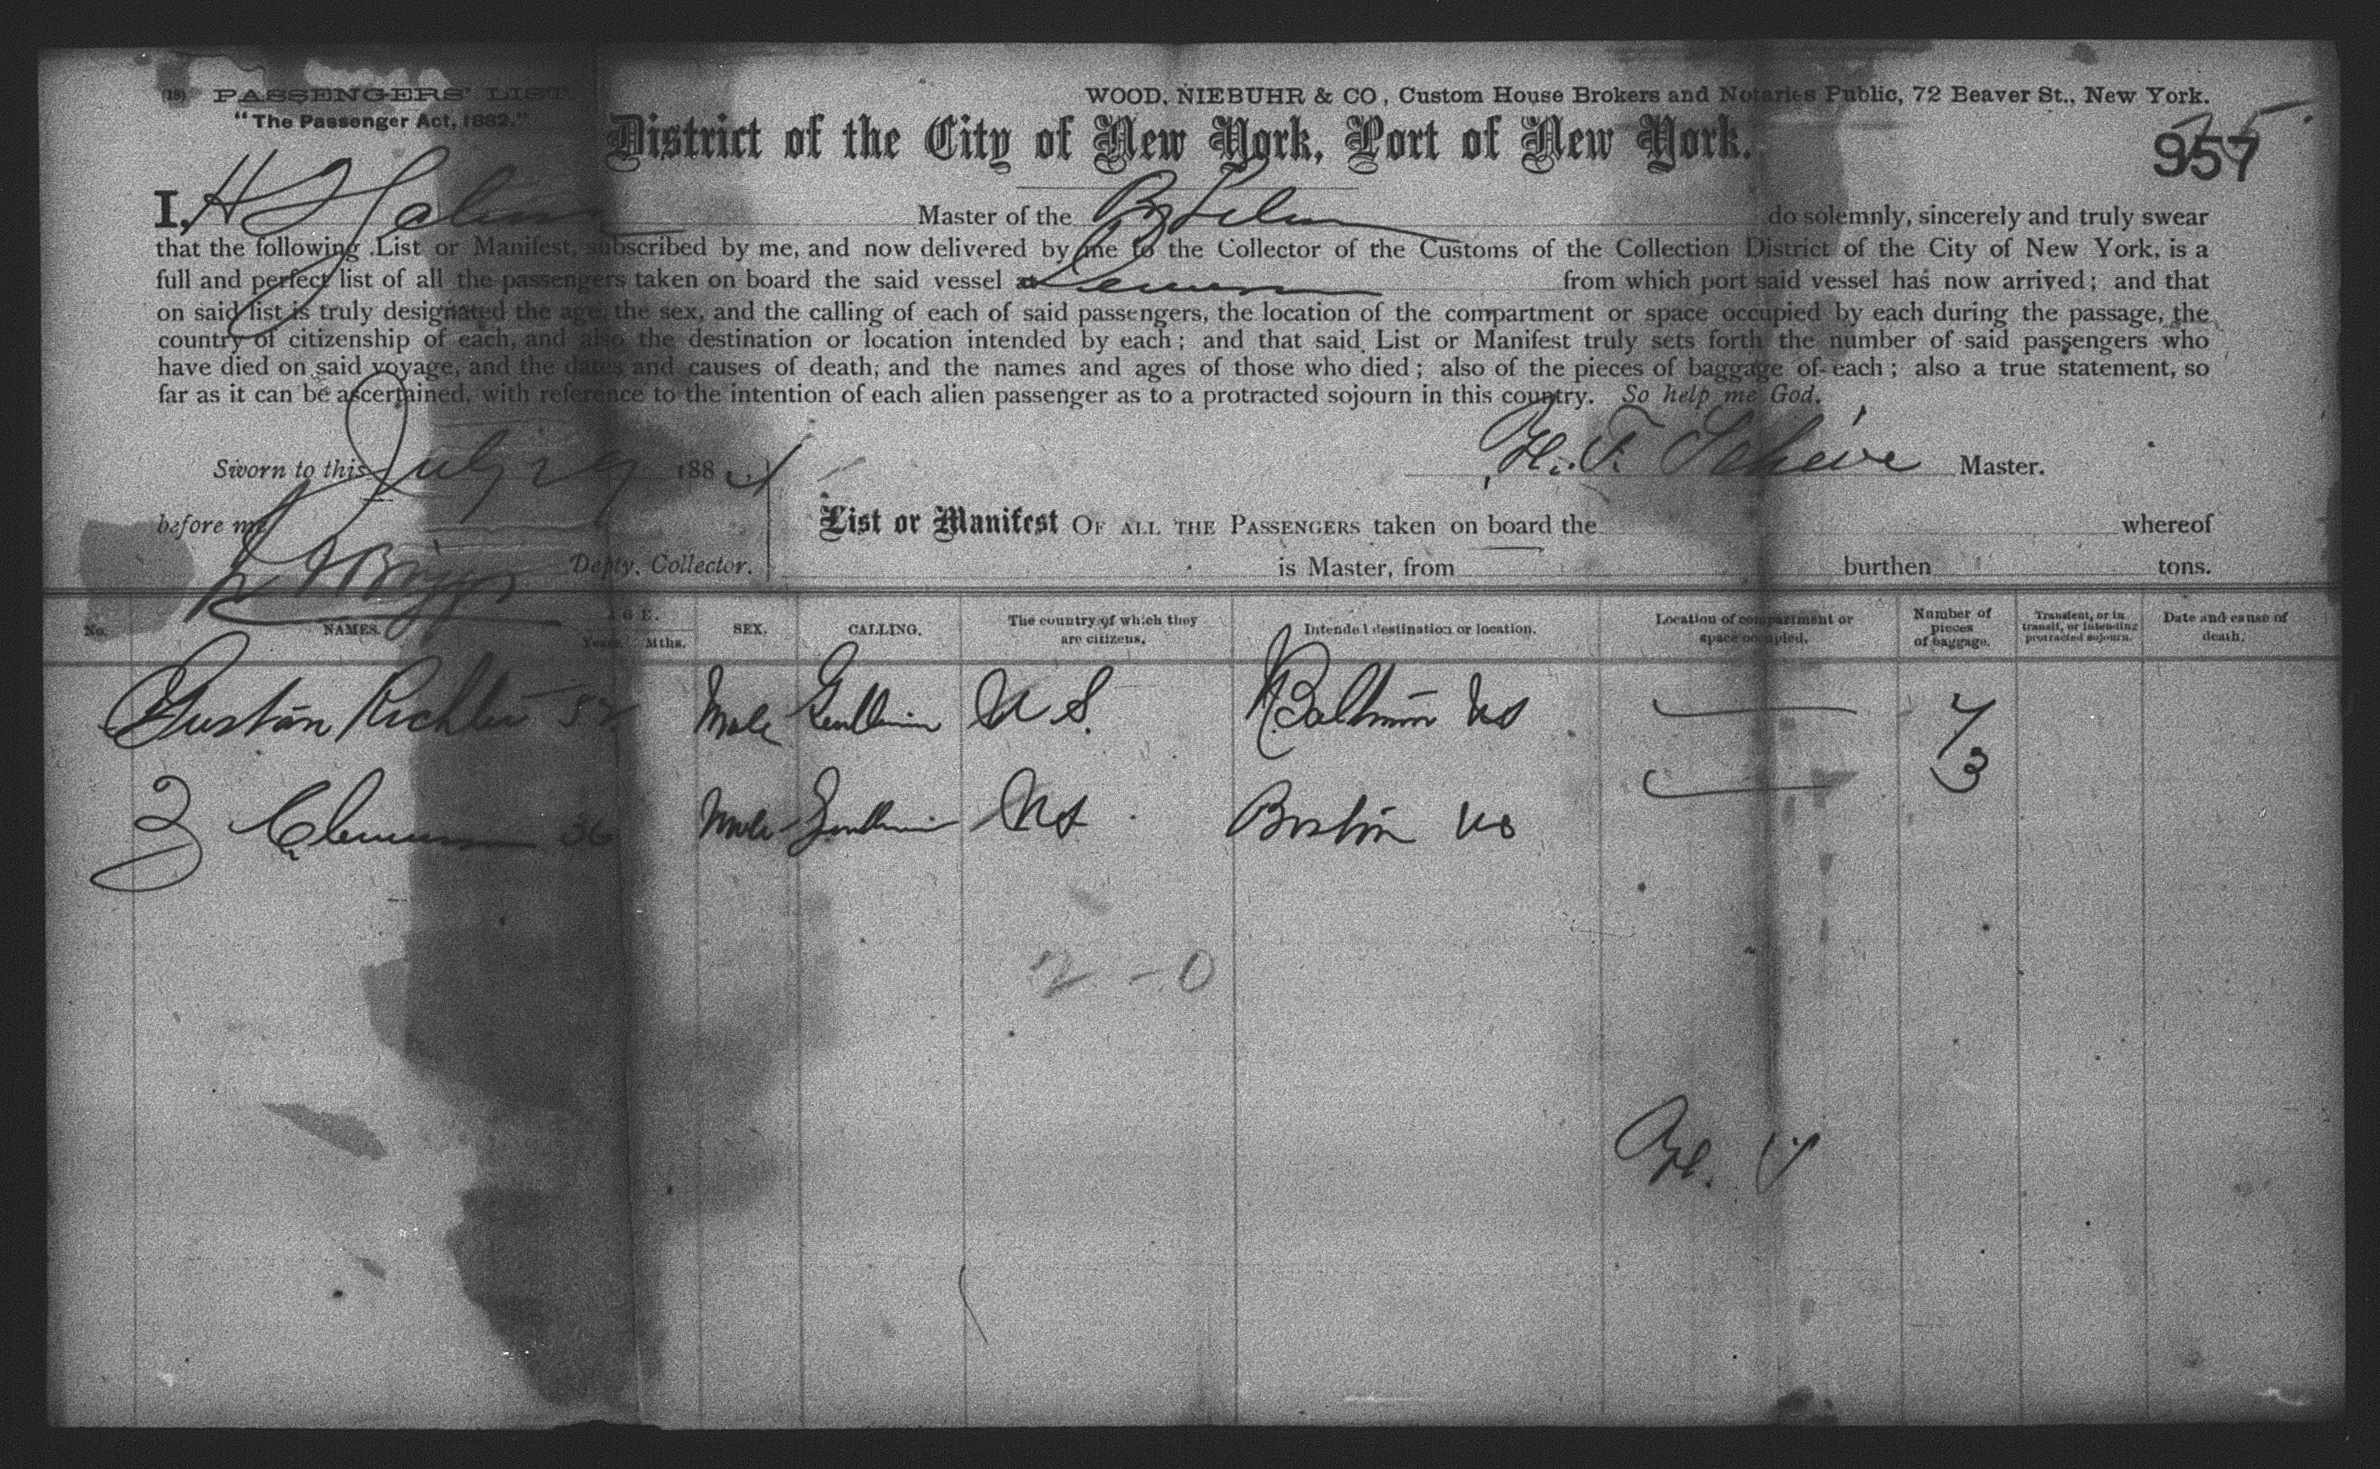 (18) PASSENGERS' LIST.
WOOD, NIEBUHR & CO., Custom House Brokers and Notaries Public, 72 Beaver St., New York.
"The Passenger Act, 1882."
District of the City of New York, Port of New York.
957
I, H Master of the do solemnly, sincerely and truly swear
that the following List or Manifest, subscribed by me, and now delivered by me to the Collector of the Customs of the Collection District of the City of New York, is a
full and perfect list of all the passengers taken on board the said vessel at from which port said vessel has now arrived; and that
on said list is truly designated the age, the sex, and the calling of each of said passengers, the location of the compartment or space occupied by each during the passage, the
country of citizenship of each, and also the destination or location intended by each; and that said List or Manifest truly sets forth the number of said passengers who
have died on said voyage, and the dates and causes of death, and the names and ages of those who died; also of the pieces of baggage of each; also a true statement, so
far as it can be ascertained, with reference to the intention of each alien passenger as to a protracted sojourn in this country. So help me God.
Sworn to this July 29 188
H. F. Master.
before me
List or Manifest OF ALL THE PASSENGERS taken on board the whereof
Briggs Depty. Collector.
is Master, from burthen tons.
No. NAMES. AGE. Years. Mths. SEX. CALLING. The country of which they are citizens. Intended destination or location. Location of compartment or space occupied. Number of pieces of baggage. Transient, or in transit, or intending protracted sojourn. Date and cause of death.
Gustan Richter 52 Male Gentleman U S. Baltimore US
3
Male Gentleman US Boston US
2 - 0